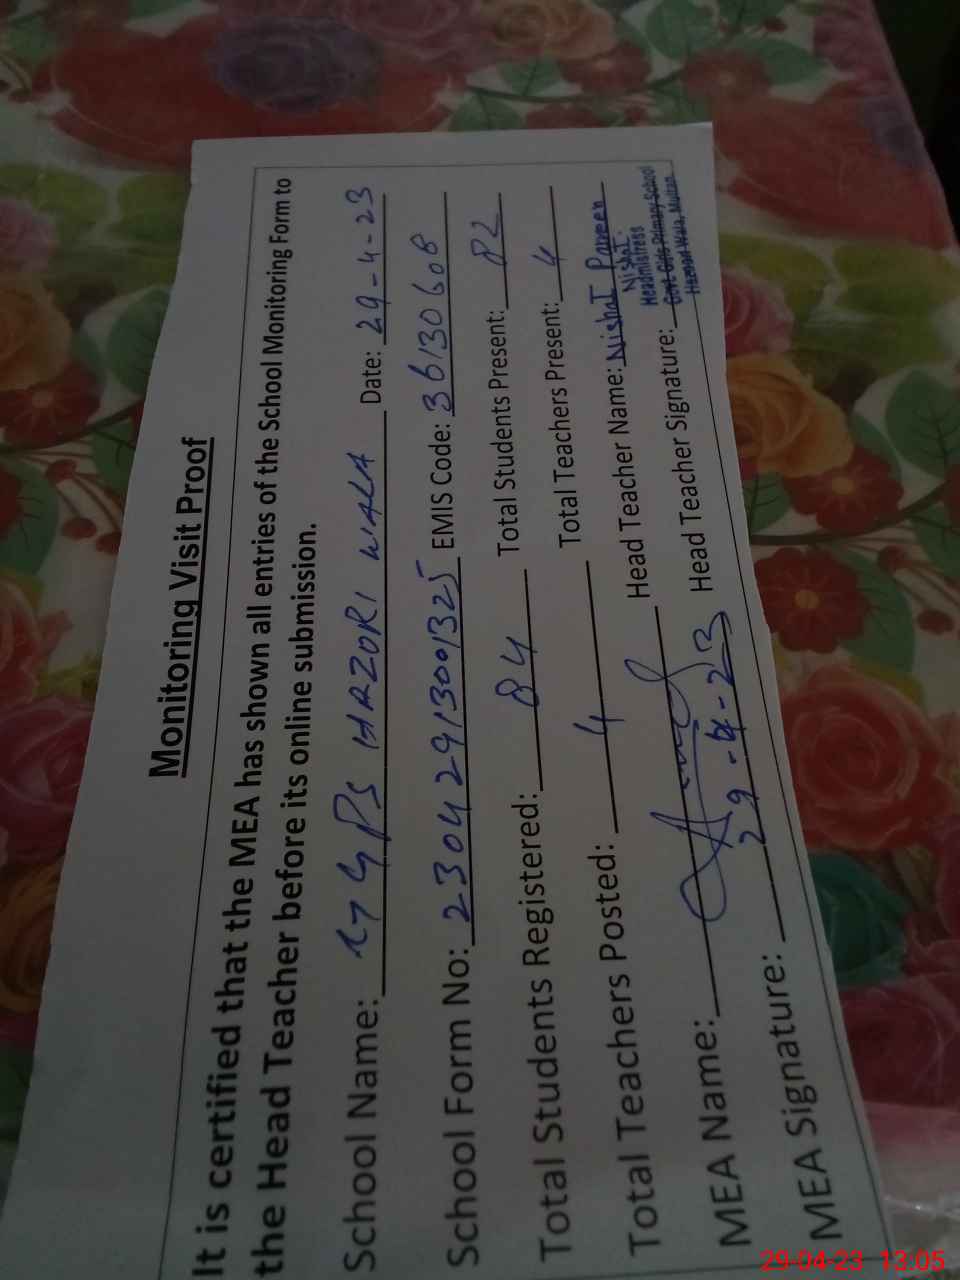 Monitoring Visit Proof
It is certified that the MEA has shown all entries of the School Monitoring Form to
the Head Teacher before its online submission.
School Name: GGPS HAZORI WALA Date: 29-4-23
School Form No: 23042913001325 EMIS Code: 36130608
Total Students Registered: 84 Total Students Present: 82
Total Teachers Posted: 4 Total Teachers Present: 4
MEA Name: Head Teacher Name: Nishat Parveen
29-4-23
MEA Signature: Head Teacher Signature: Nishat
Headmistress
Govt. Girls Primary School
Wala, Multan
29-04-23 13:05